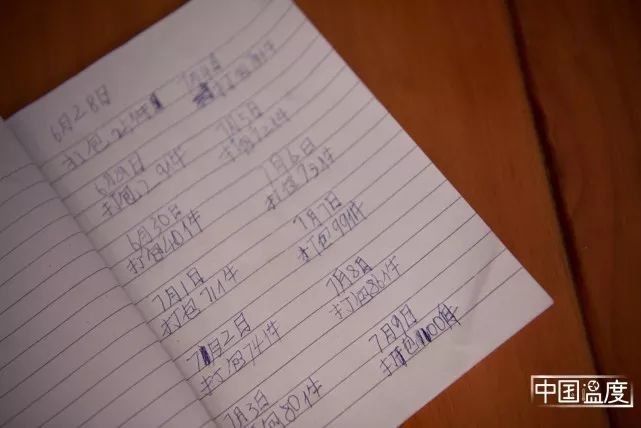 6月28日
打包
6月29日
打包
6月30日
打包40件
7月1日
打包71件
7月2日
打包74件
7月3日
打包80件
打包
7月5日
打包72件
7月6日
打包75件
7月7日
打包99件
7月8日
打包86件
7月9日
打包100件
中国温度